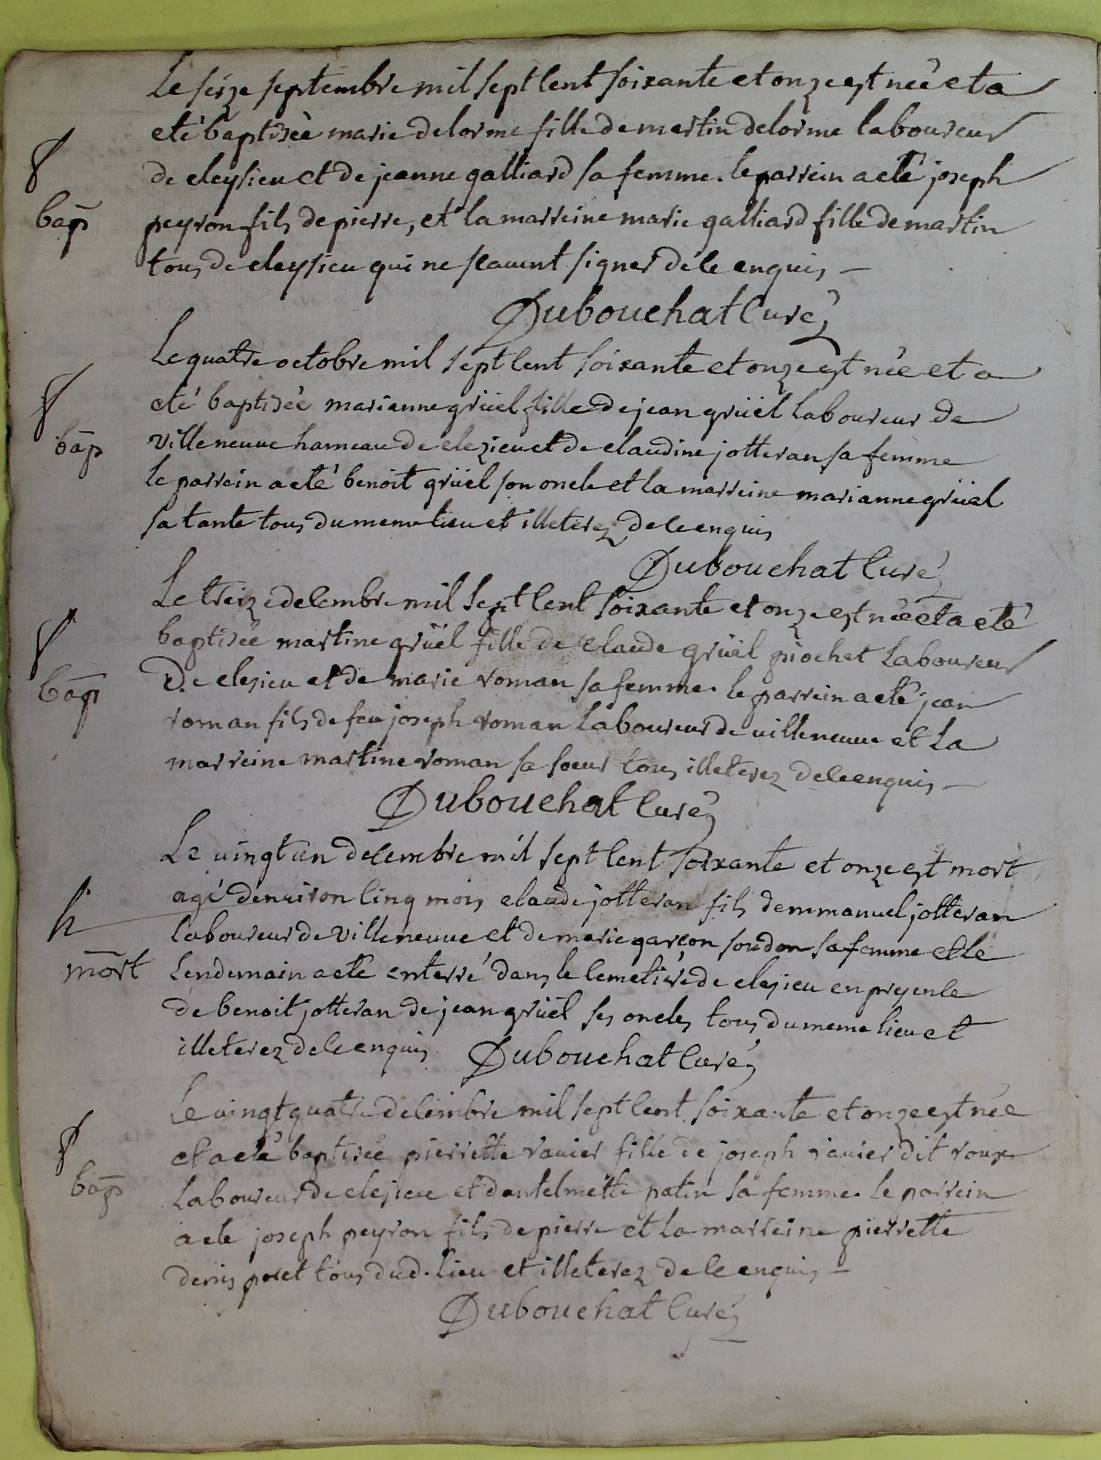 Le seize septembre mil sept cent soixante et onze est née et a
eté baptisèe marie delorme fille de martin delorme laboureur
de cleysieu et de jeanne galliard sa femme. le parrein a eté joseph
bap peyron fils de pierre, et la marreine marie galliard fille de martin
tous de cleysieu qui ne scavent signer de ce enquis
Dubouchat Curé
Le quatre octobre mil sept cent soixante et onze est née et a
eté baptisée marianne grüel fille de jean grüel laboureur de
bap villeneuve hameau de clezieu et de claudine jotteran sa femme
le parrein a eté benoit grüel son oncle et la marreine marianne grüel
sa tante tous du meme lieu et illeterez de ce enquis
Dubouchat Curé
Le treize decembre mil sept cent soixante et onze est née et a eté
baptisée martine grüel fille de claude grüel piochet laboureur
bap De clesieu et de marie roman sa femme. le parrein a eté jean
roman fils de feu joseph roman laboureur de villeneuve et la
marreine martine roman sa soeur tous illeterez de ce enquis
Dubouchat Curé
Le vingt un decembre mil sept cent soixante et onze est mort
agé denviron cinq mois claude jotteran fils demmanuel jotteran
laboureur de villeneuve et de marie garçon soudon sa femme et le
mort lendemain a eté enterré dans le cemetiere de clesieu en presence
de benoit jotteran de jean grüel ses oncles tous du meme lieu et
illeterez de ce enquis Dubouchat Curé
Le vingt quatre decembre mil sept cent soixante et onze est née
et a eté baptisée pierrette ravier fille de joseph ravier dit roux
bap laboureur de clesieu et dantelmette patin sa femme. le parrein
a eté joseph peyron fils de pierre et la marreine pierrette
denis poret tous dud. lieu et illeterez de ce enquis
Dubouchat Curé